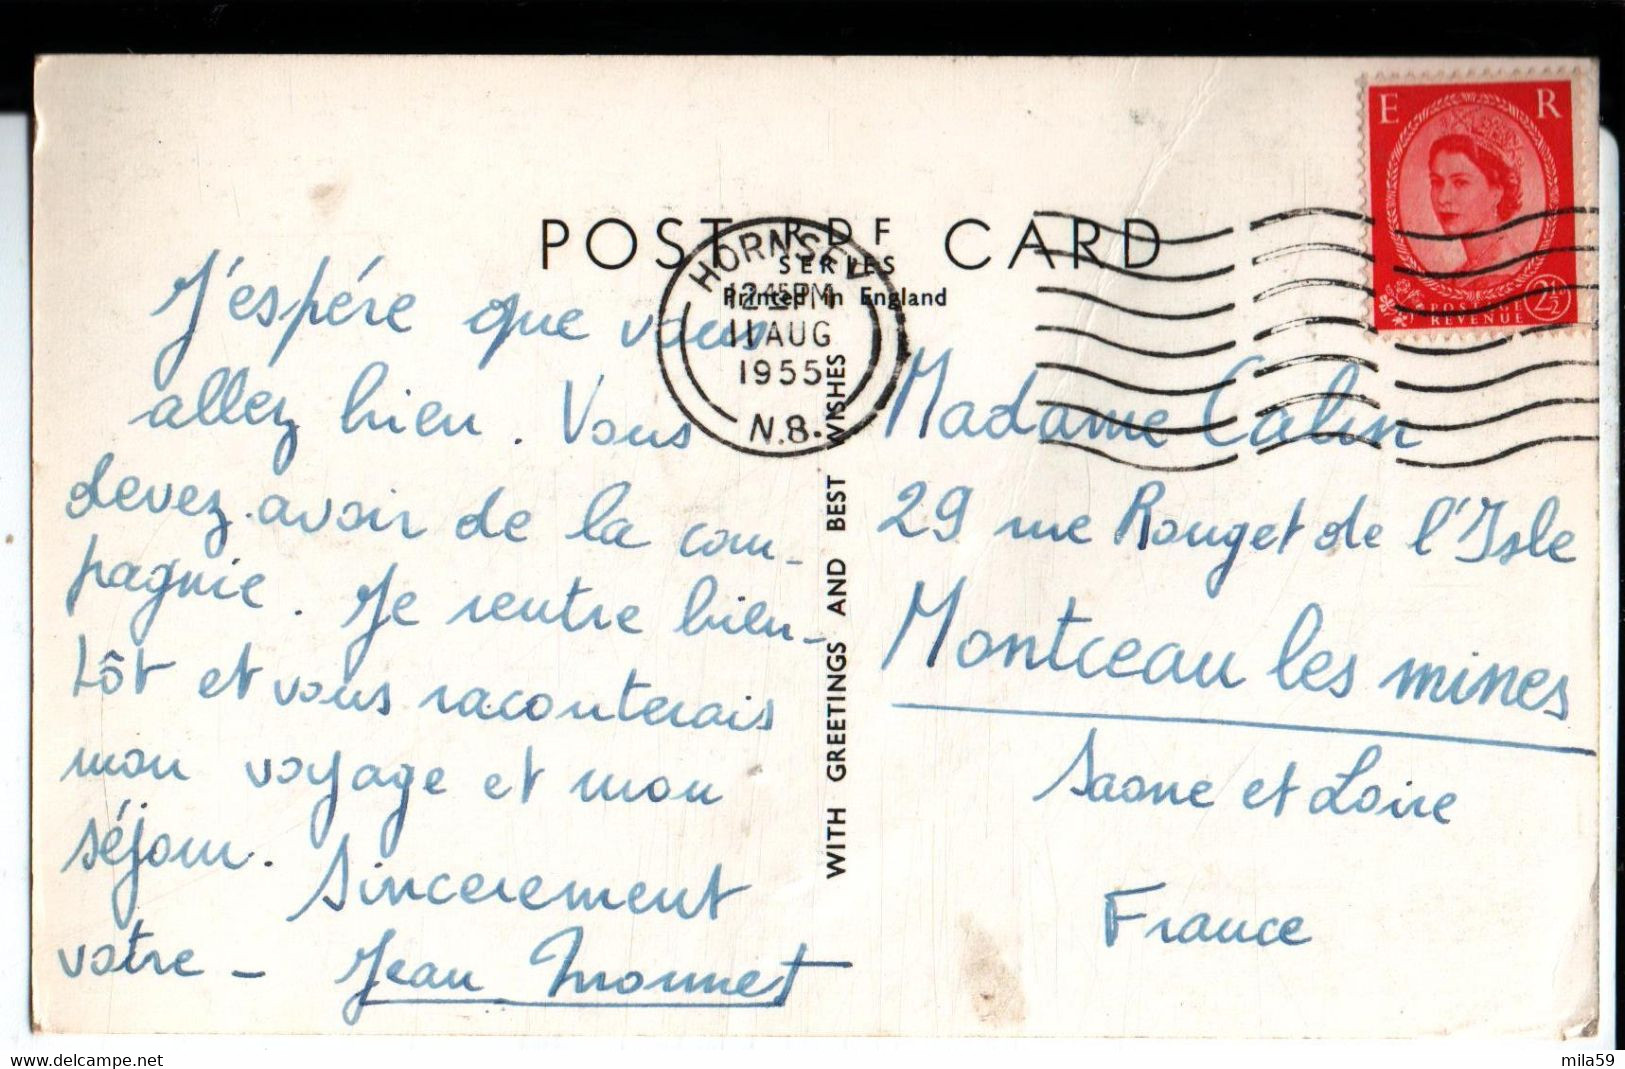 POST CARD
R D F
SERIES
Printed in England
HORNSEY
12 45 PM
11 AUG
1955
N.8.
E R
POSTAGE
REVENUE
2½
J'espére que vous
allez bien. Vous
devez avoir de la com-
pagnie. Je rentre bien-
tôt et vous raconterais
mon voyage et mon
séjour. Sincerement
votre - Jean Monnet
WITH GREETINGS AND BEST WISHES
Madame Calin
29 rue Rouget de l'Isle
Montceau les mines
Saone et Loire
France
www.delcampe.net
mila59